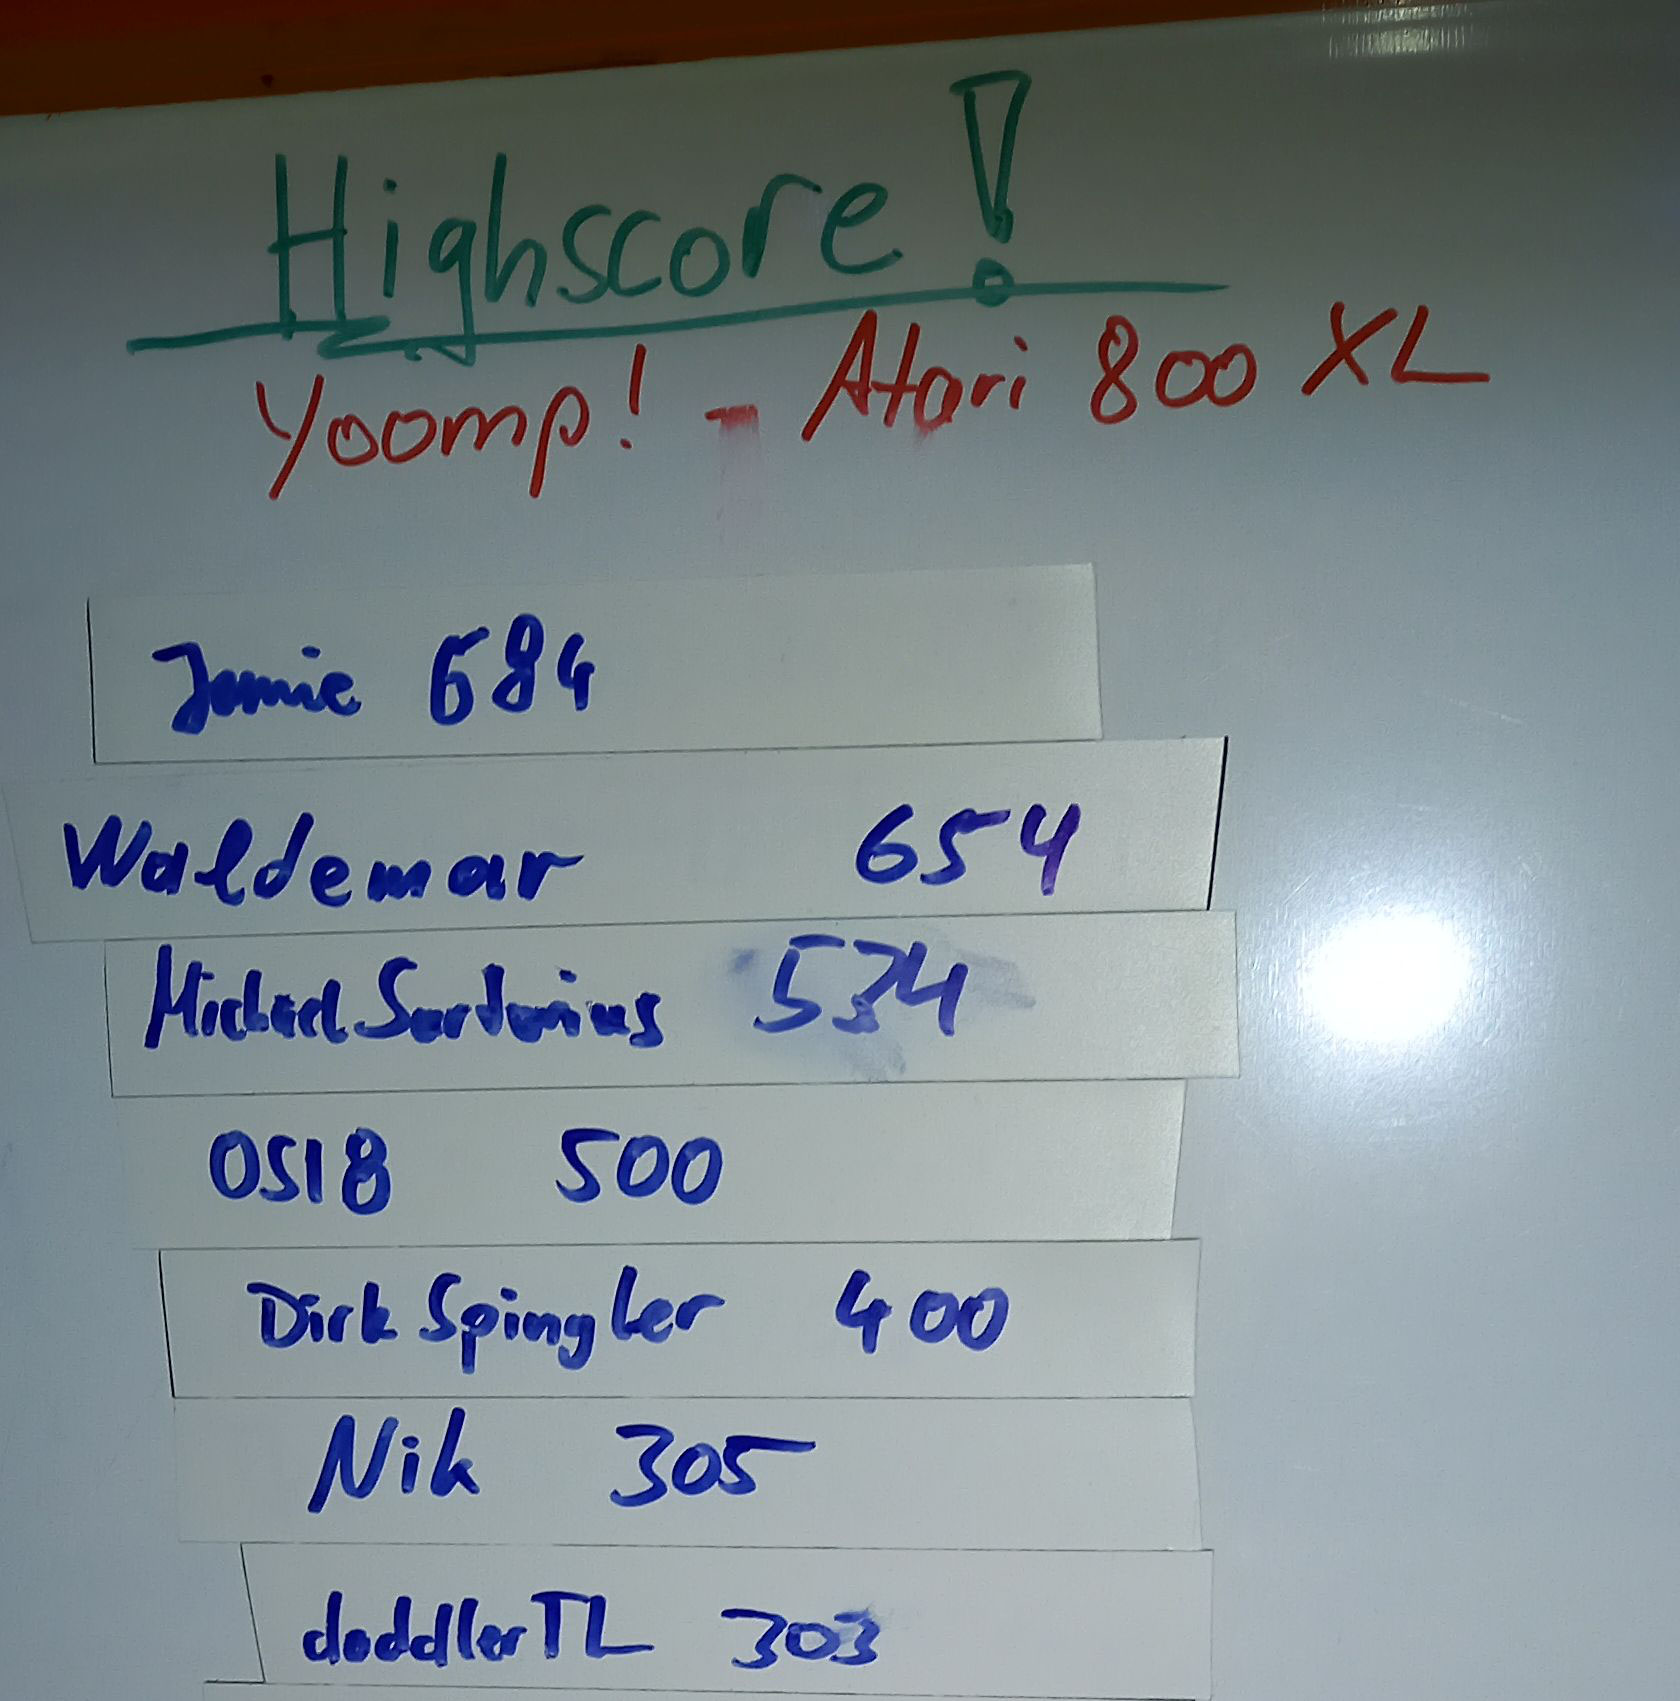 Highscore!
Yoomp! - Atari 800 XL
Jamie 684
Waldemar 654
Michael Sartorius 534
OS18 500
Dirk Spingler 400
Nik 305
doddlerTL 303